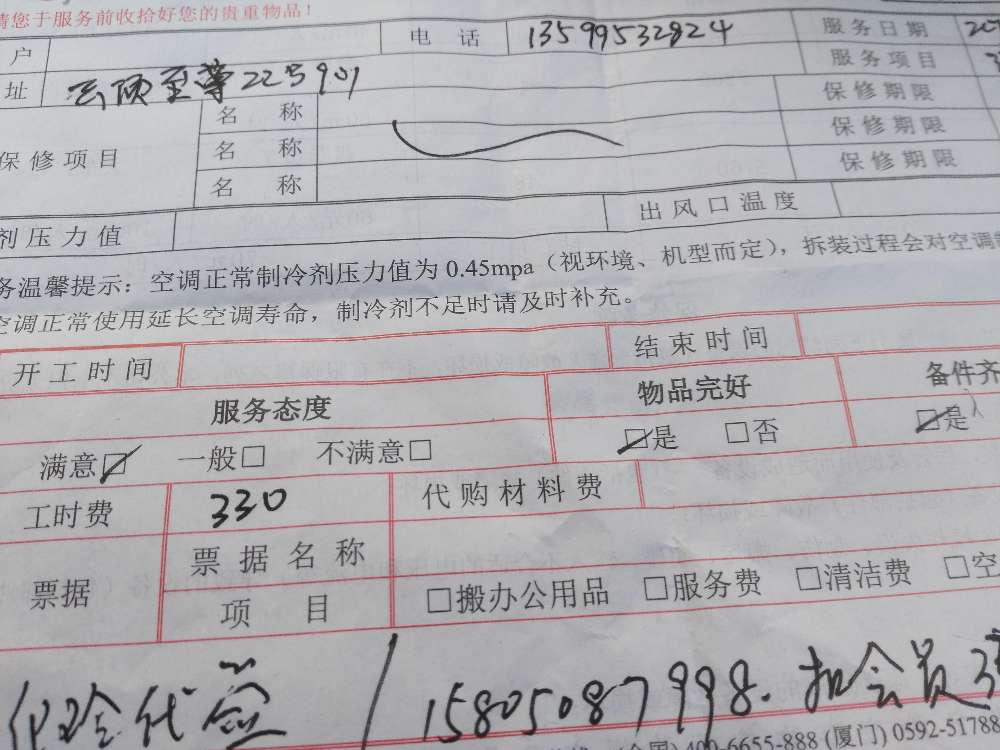 请您于服务前收拾好您的贵重物品！
户 电 话 13599532824 服务日期 20
址 云顶至尊22号901 服务项目
保修项目 名 称 保修期限
名 称 保修期限
名 称 保修期限
剂压力值 出风口温度
务温馨提示：空调正常制冷剂压力值为 0.45mpa（视环境、机型而定），拆装过程会对空调制
空调正常使用延长空调寿命，制冷剂不足时请及时补充。
开工时间 结束时间
服务态度 物品完好 备件齐
满意☑ 一般□ 不满意□ ☑是 □否 ☑是
工时费 330 代购材料费
票据 票据名称
项 目 □搬办公用品 □服务费 □清洁费 □空
代签 / 15805087998. 扣会员
(全国) 400-6655-888 (厦门) 0592-51788